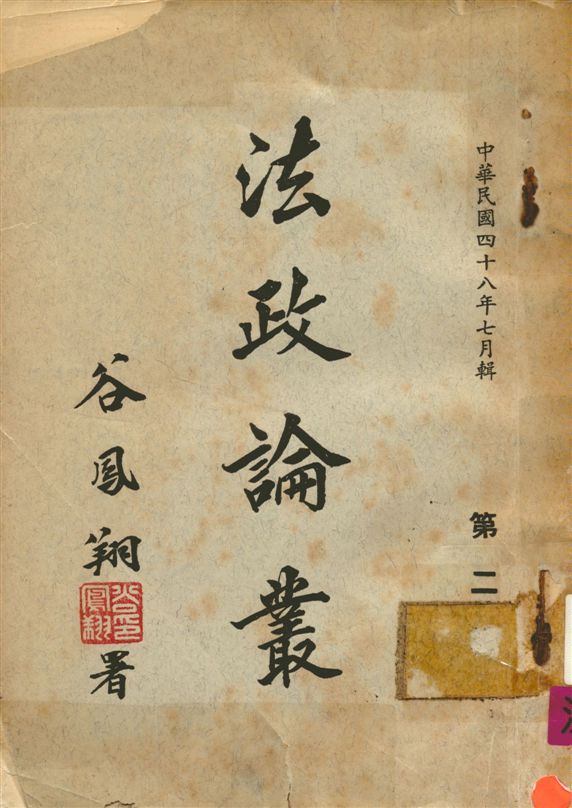 中華民國四十八年七月輯
第二
法政論叢
谷鳳翔署
谷鳳翔印